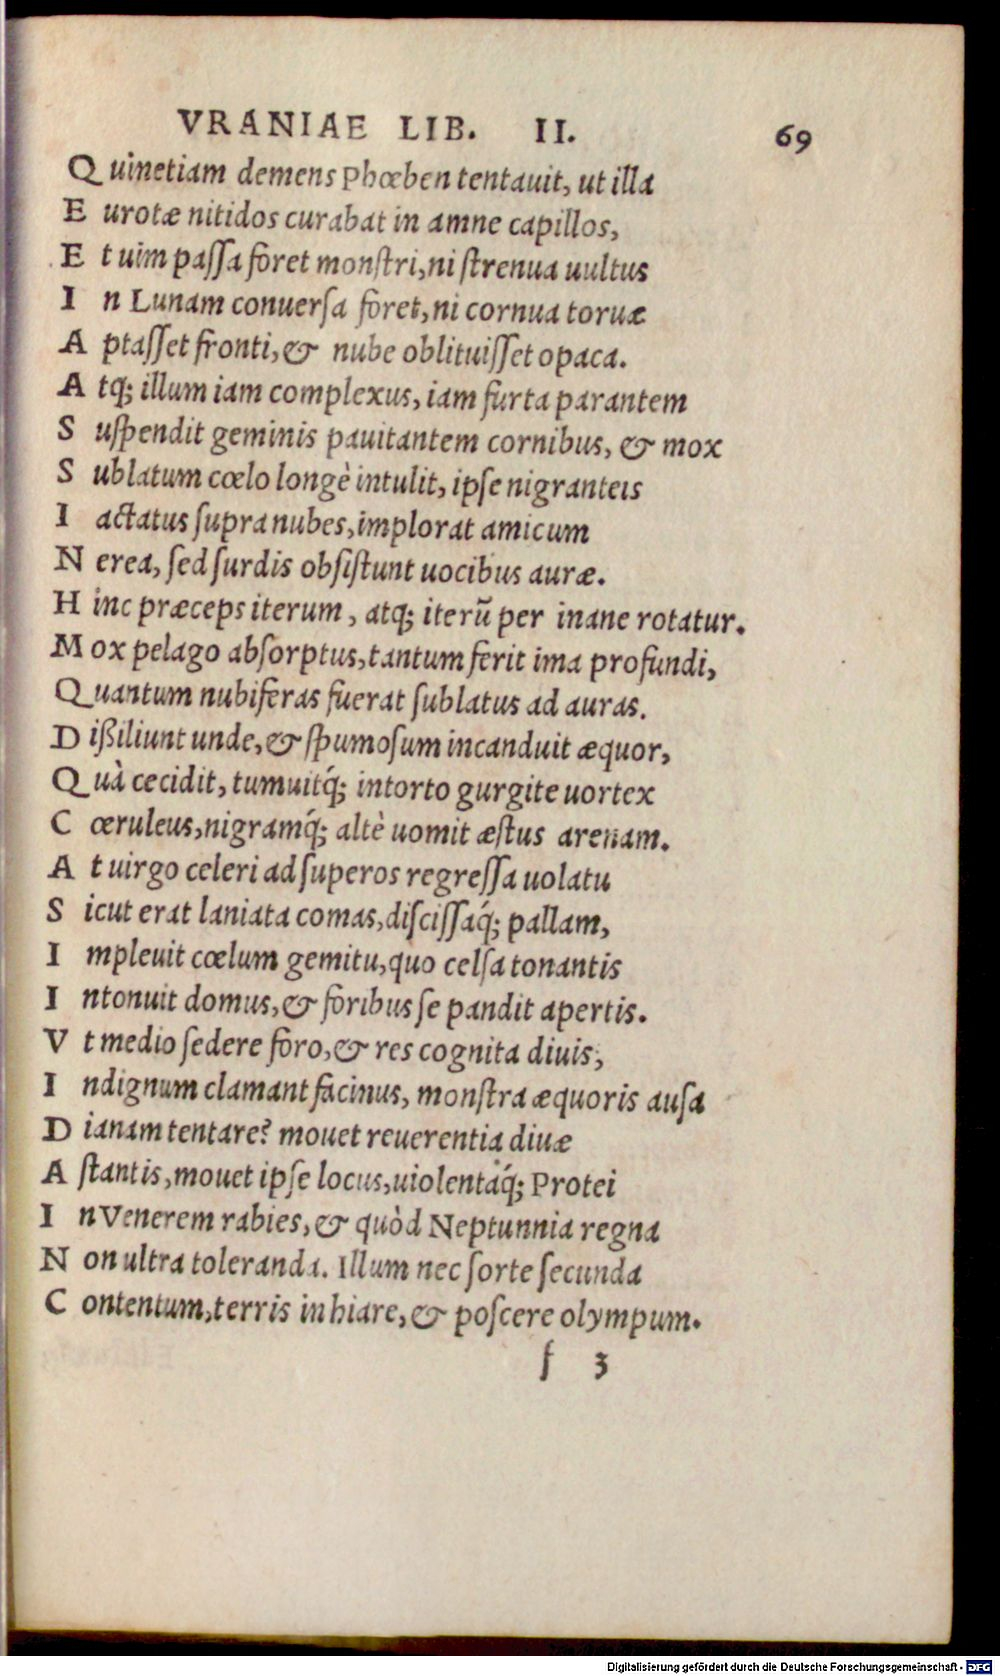 VRANIAE LIB. II. 69
Q uinetiam demens Phœben tentauit, ut illa
E urotæ nitidos curabat in amne capillos,
E t uim paſſa foret monſtri, ni ſtrenua uultus
I n Lunam conuerſa foret, ni cornua toruæ
A ptaſſet fronti, & nube oblituiſſet opaca.
A tq; illum iam complexus, iam furta parantem
S uſpendit geminis pauitantem cornibus, & mox
S ublatum cœlo longè intulit, ipſe nigranteis
I actatus ſupra nubes, implorat amicum
N erea, ſed ſurdis obſiſtunt uocibus auræ.
H inc præceps iterum, atq; iterũ per inane rotatur.
M ox pelago abſorptus, tantum ferit ima profundi,
Q uantum nubiferas fuerat ſublatus ad auras.
D ißiliunt unde, & ſpumoſum incanduit æquor,
Q uà cecidit, tumuitq́; intorto gurgite uortex
C œruleus, nigramq́; altè uomit æſtus arenam.
A t uirgo celeri ad ſuperos regreſſa uolatu
S icut erat laniata comas, diſciſſaq́; pallam,
I mpleuit cœlum gemitu, quo celſa tonantis
I ntonuit domus, & foribus ſe pandit apertis.
V t medio ſedere foro, & res cognita diuis,
I ndignum clamant facinus, monſtra æquoris auſa
D ianam tentare? mouet reuerentia diuæ
A ſtantis, mouet ipſe locus, uiolentaq́; Protei
I n Venerem rabies, & quòd Neptunnia regna
N on ultra toleranda. Illum nec ſorte ſecunda
C ontentum, terris inhiare, & poſcere olympum.
f 3
Digitalisierung gefördert durch die Deutsche Forschungsgemeinschaft - DFG